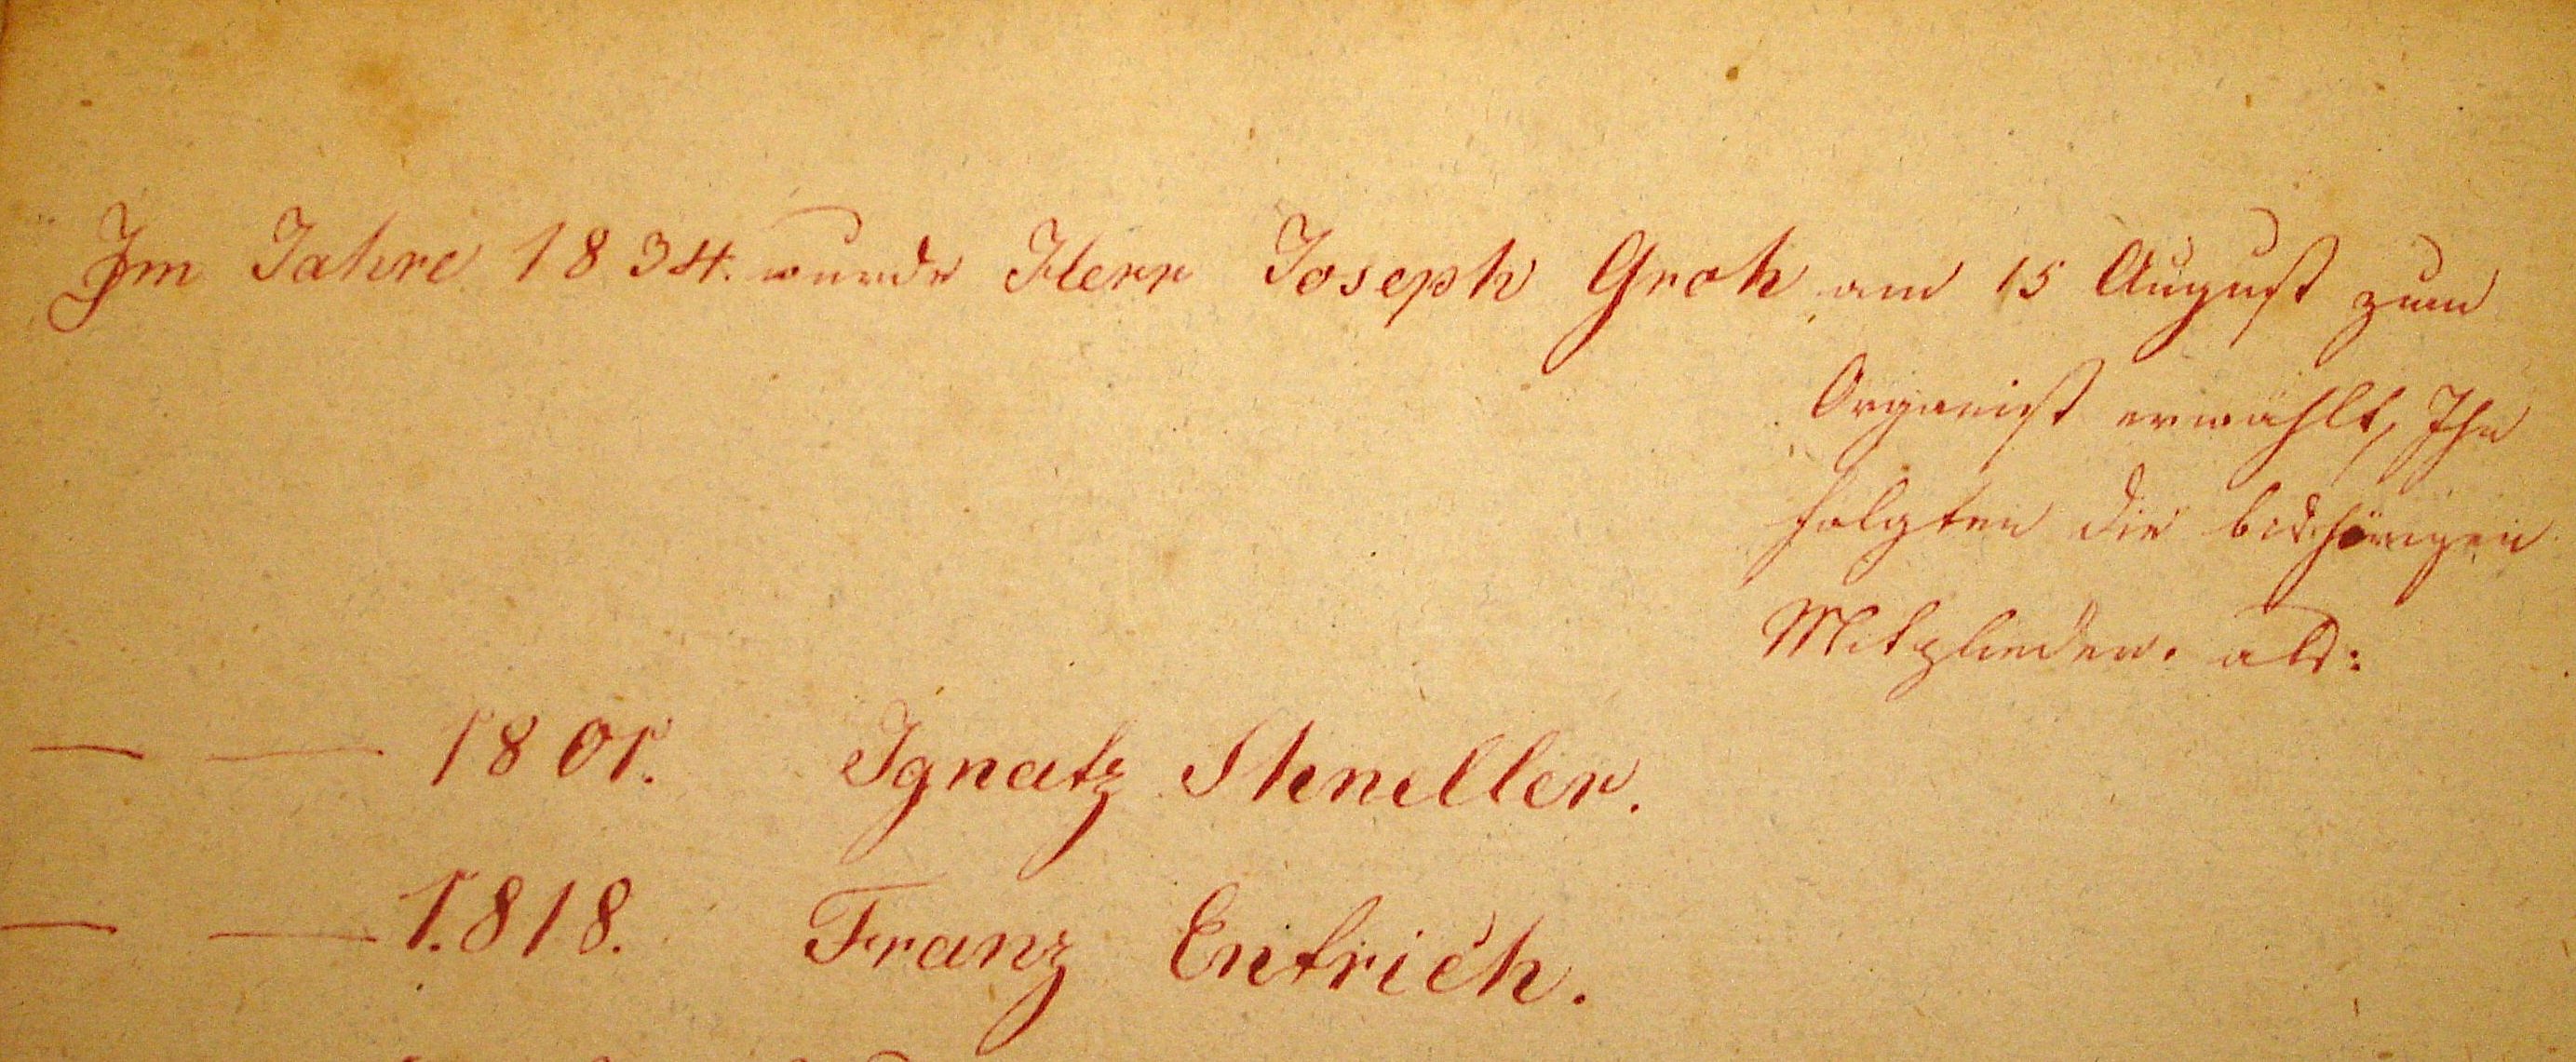 Im Jahre 1834. wurde Herr Joseph Groh am 15 August zum
Organist erwählt, Ihn
folgten die
Mitglieder. als:
— — 1801. Ignatz Shneller.
— — 1.818. Franz Entrich.